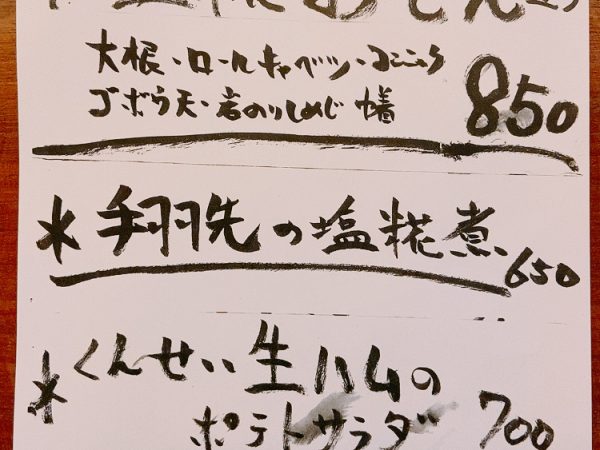 おでん
大根・ロールキャベツ・
ゴボウ天・岩のりしめじ巾着 850
*手羽先の塩糀煮 650
*くんせい生ハムの
ポテトサラダ 700